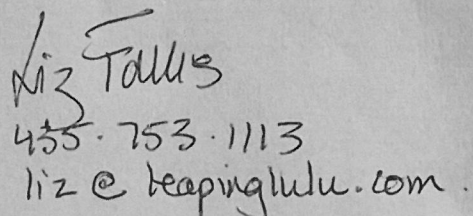 Liz Tallis
435.753.1113
liz@leapinglulu.com